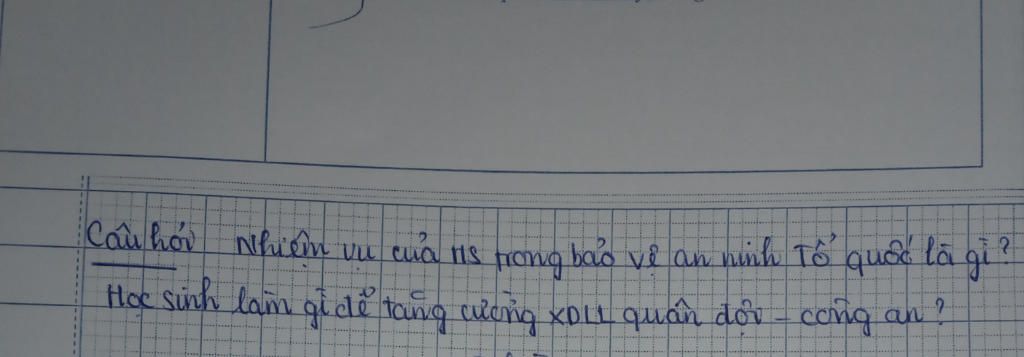 Câu hỏi Nhiệm vụ của HS trong bảo vệ an ninh Tổ quốc là gì?
Học sinh làm gì để tăng cường XDLL quân đội - công an?